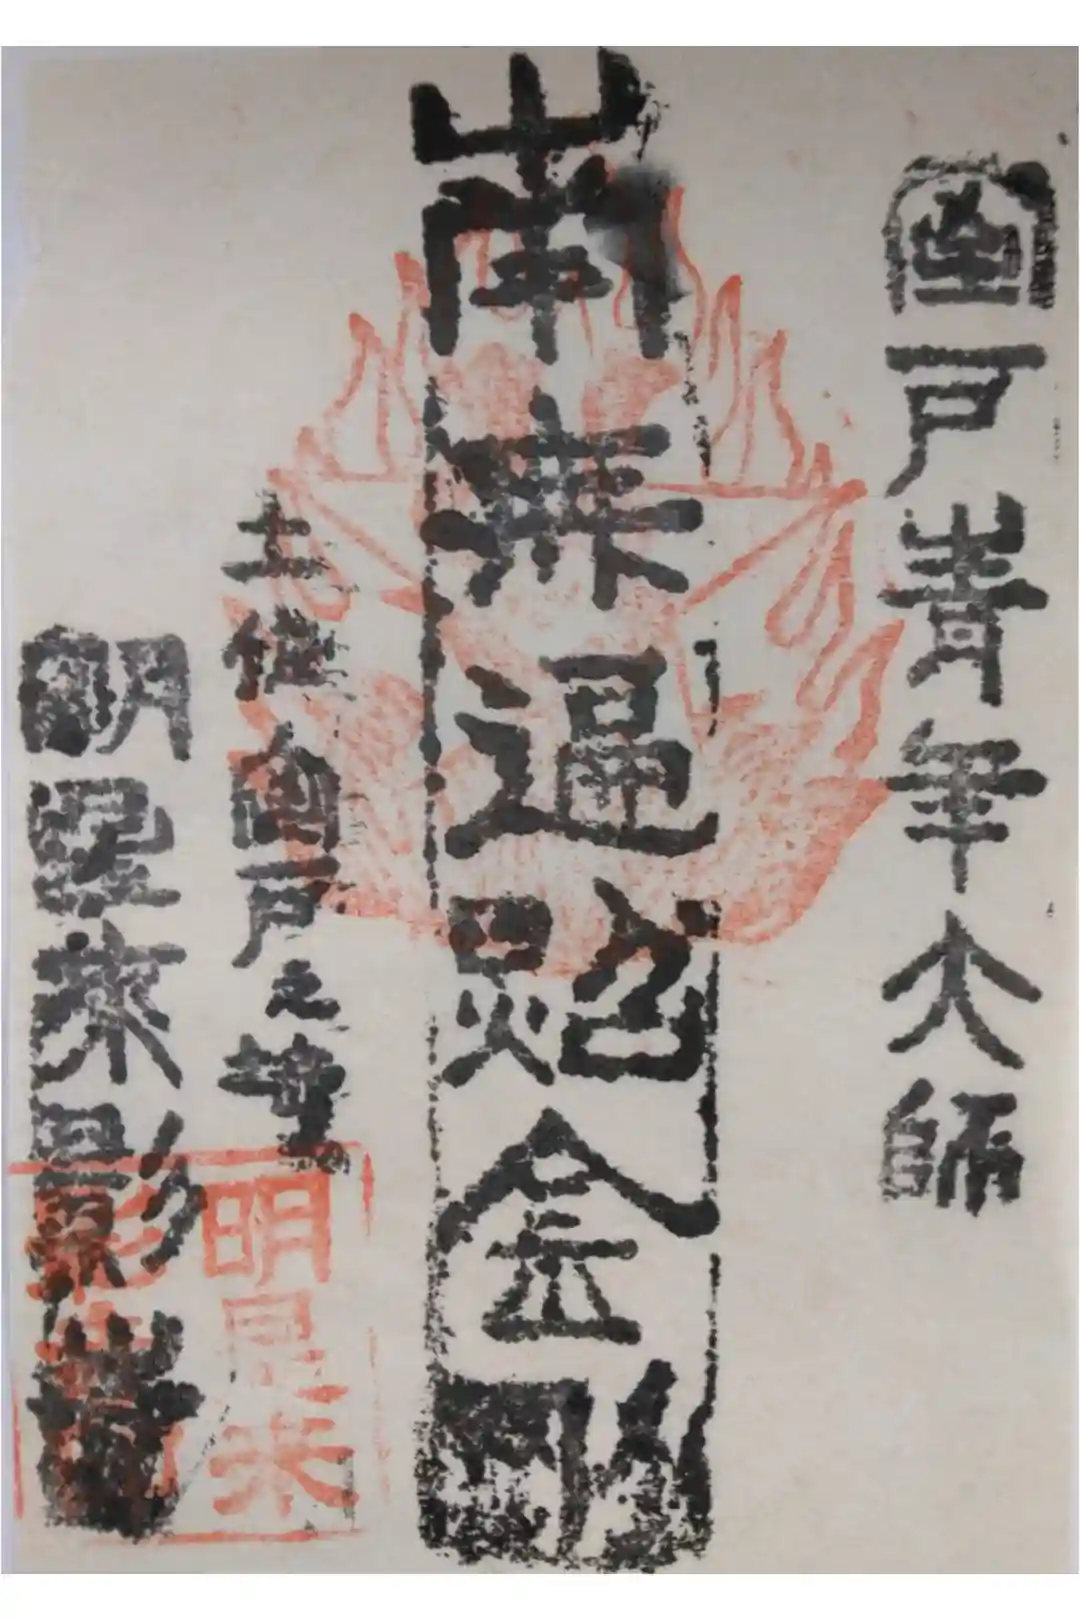 室戸青年大師
南無遍照金剛
土佐室戸之
明星來影
明星来
影